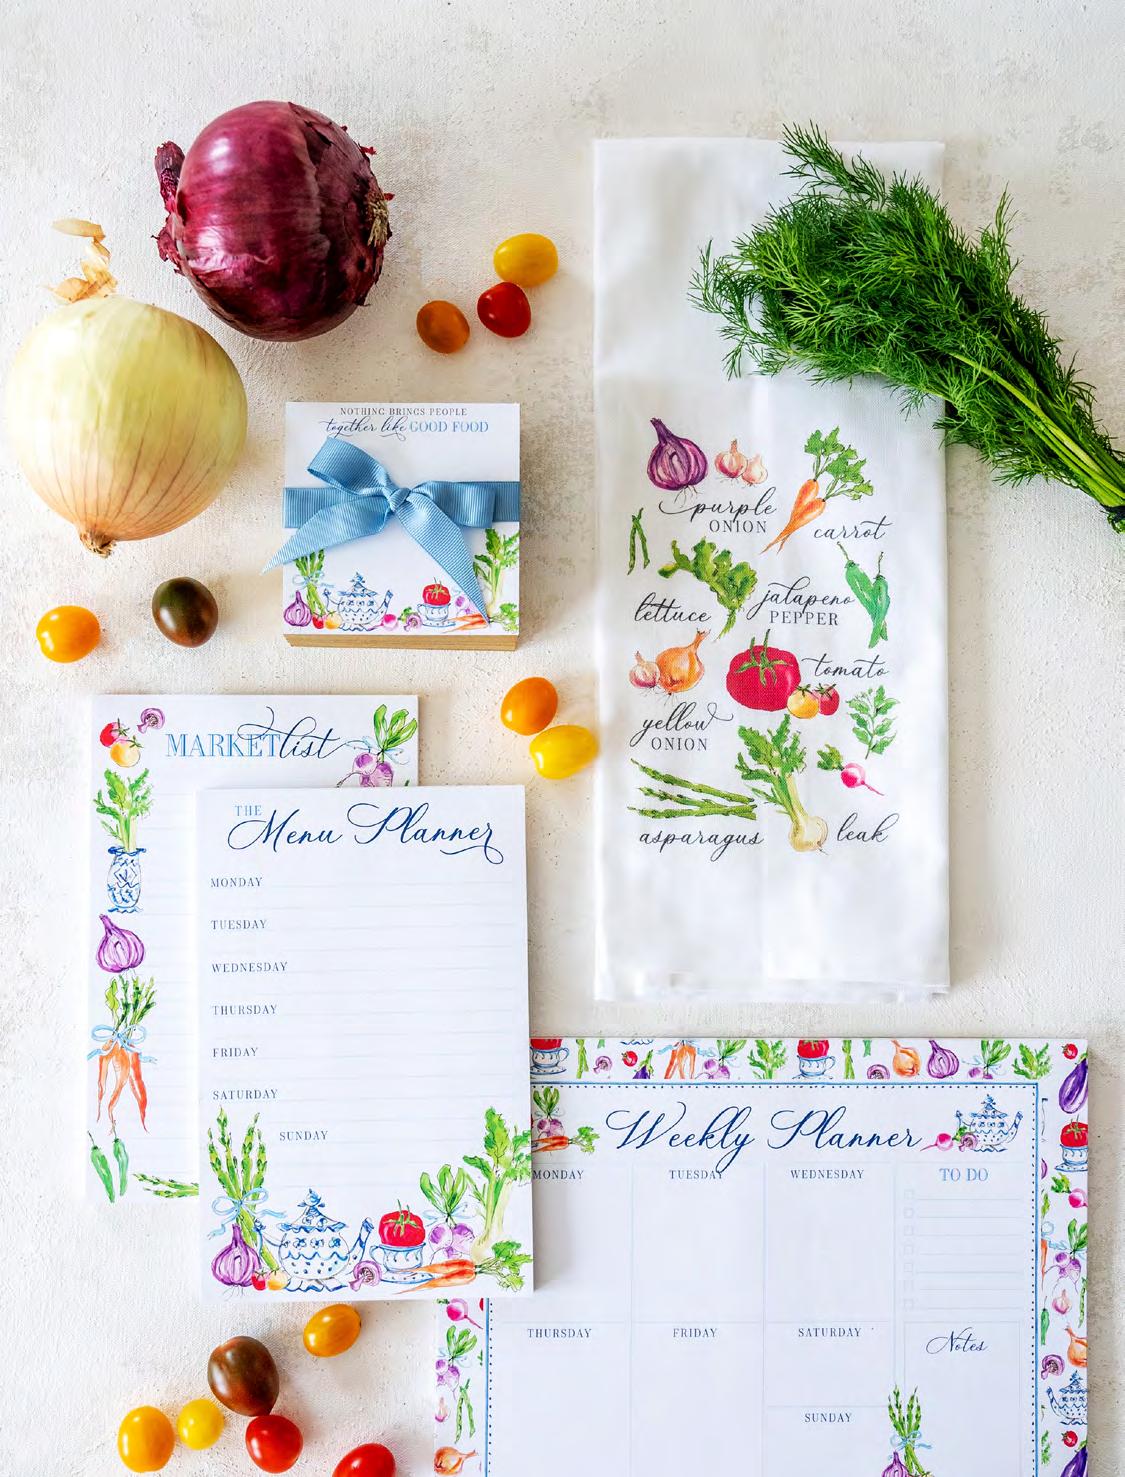 NOTHING BRINGS PEOPLE
together like GOOD FOOD
purple
ONION
carrot
lettuce
jalapeno
PEPPER
tomato
yellow
ONION
asparagus
leak
MARKET list
THE
Menu Planner
MONDAY
TUESDAY
WEDNESDAY
THURSDAY
FRIDAY
SATURDAY
SUNDAY
Weekly Planner
MONDAY TUESDAY WEDNESDAY TO DO
THURSDAY FRIDAY SATURDAY Notes
SUNDAY